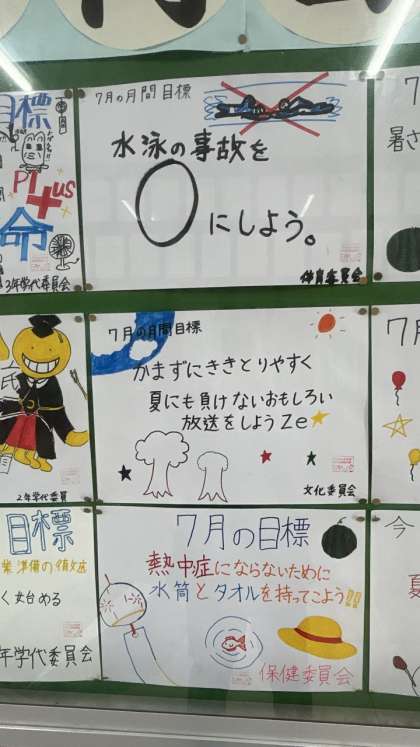 目標
Plus
命
3年学代委員会
7月の月間目標
水泳の事故を
0にしよう。
体育委員会
7
暑さ
2年学代委員
7月の月間目標
かまずにききとりやすく
夏にも負けないおもしろい
放送をしようZe
文化委員会
7月
目標
業準備の
く始める
年学代委員会
7月の目標
熱中症にならないために
水筒とタオルを持ってこよう!!
保健委員会
今
夏